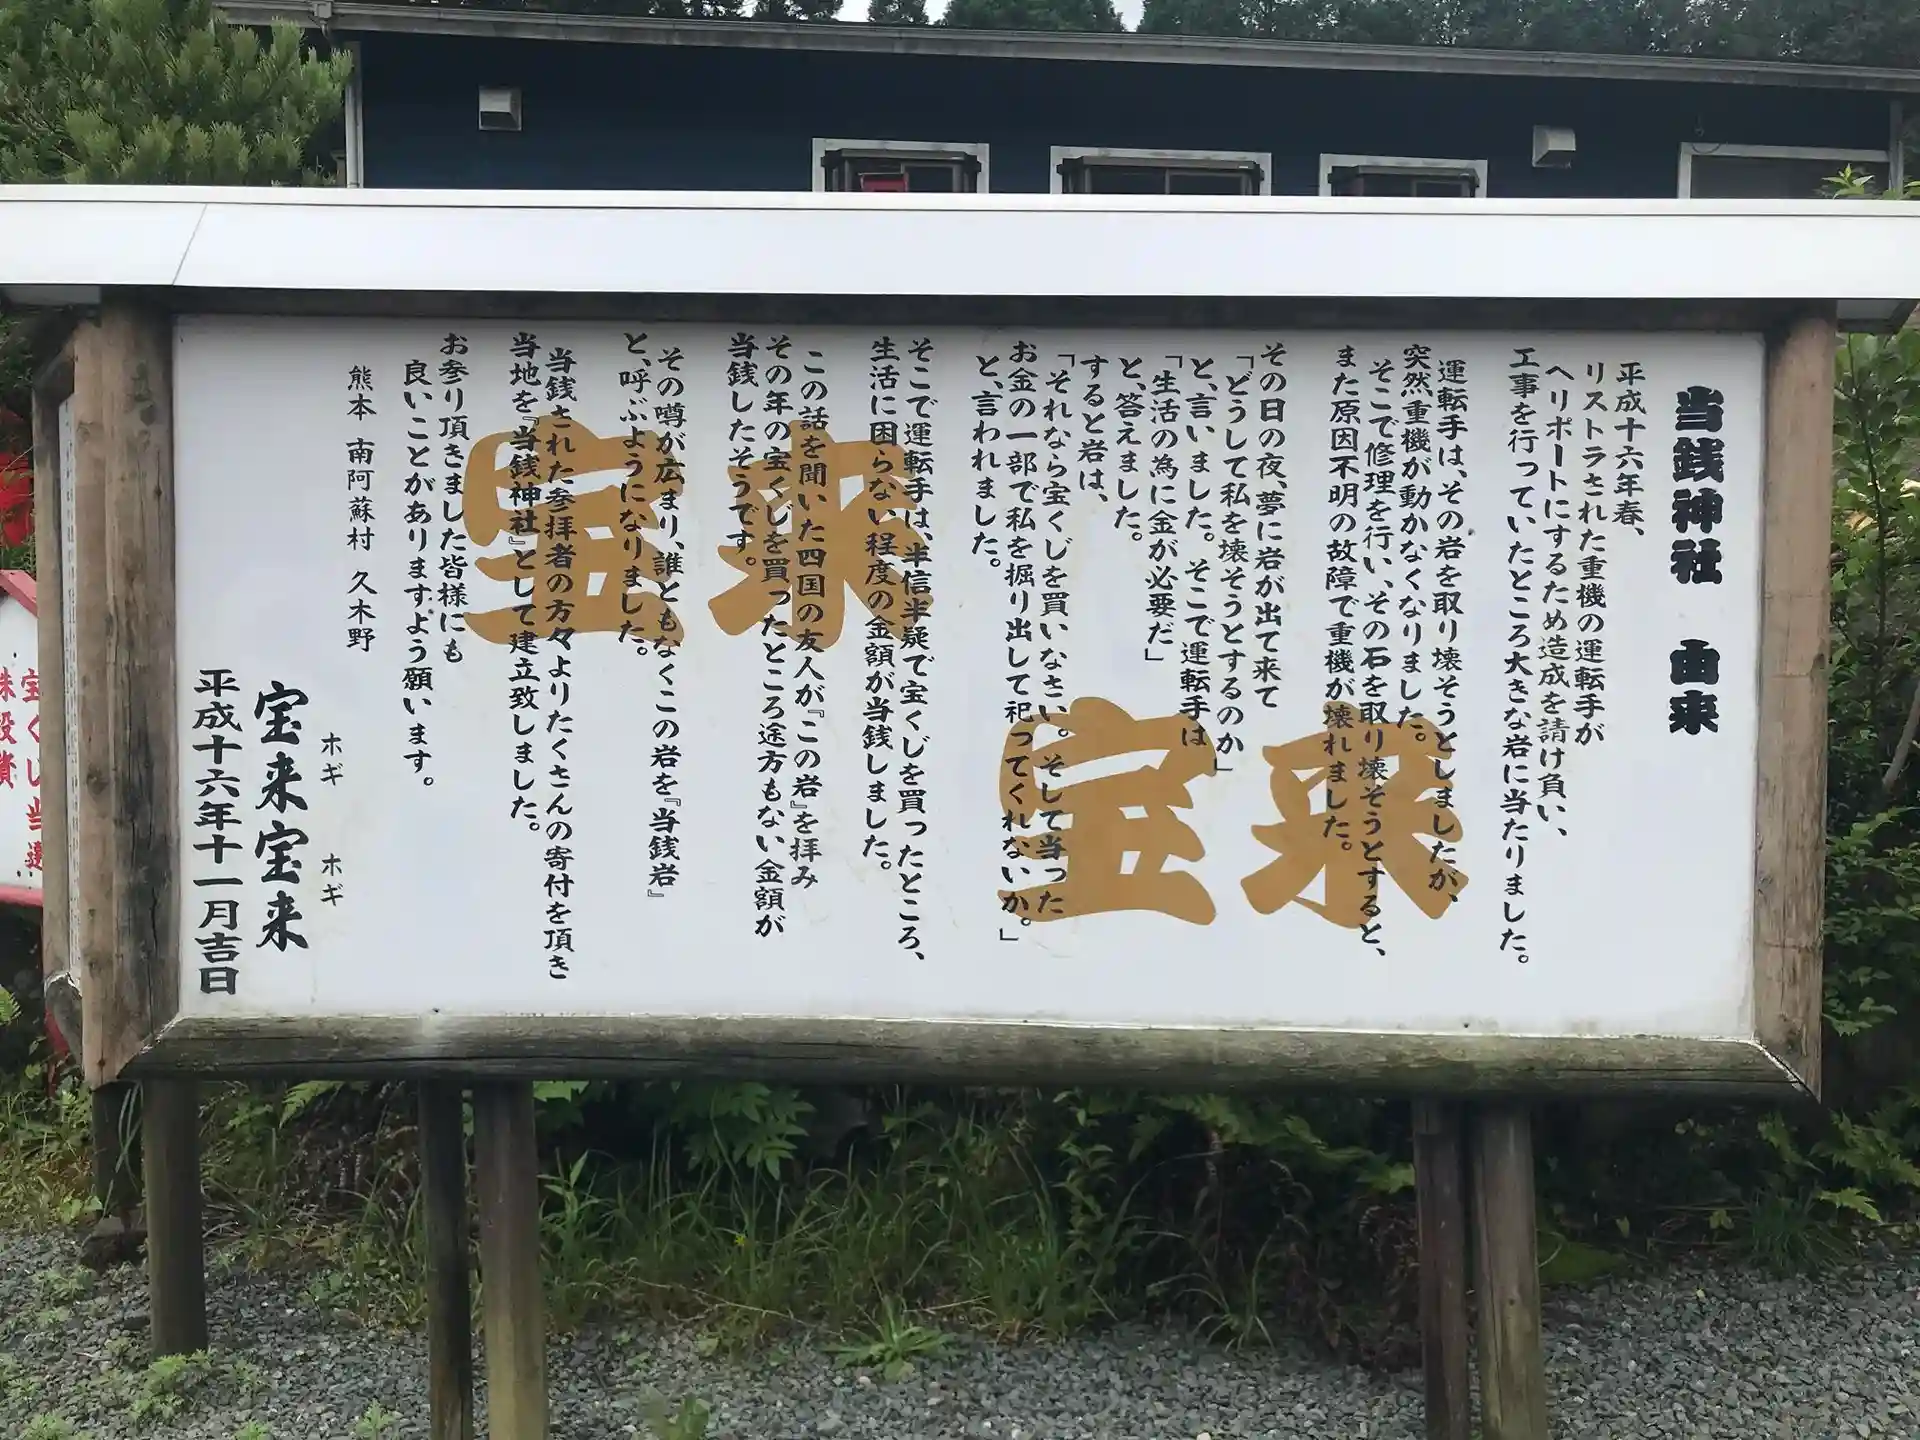 当銭神社　由来
平成十六年春、
リストラされた重機の運転手が
ヘリポートにするため造成を請け負い、
工事を行っていたところ大きな岩に当たりました。
運転手は、その岩を取り壊そうとしましたが、
突然重機が動かなくなりました。
そこで修理を行い、その石を取り壊そうとすると、
また原因不明の故障で重機が壊れました。
その日の夜、夢に岩が出て来て
「どうして私を壊そうとするのか」
と、言いました。そこで運転手は
「生活の為に金が必要だ」
と、答えました。
すると岩は、
「それなら宝くじを買いなさい。そして当った
お金の一部で私を掘り出して祀ってくれないか。」
と、言われました。
そこで運転手は、半信半疑で宝くじを買ったところ、
生活に困らない程度の金額が当銭しました。
この話を聞いた四国の友人が『この岩』を拝み
その年の宝くじを買ったところ途方もない金額が
当銭したそうです。
その噂が広まり、誰ともなくこの岩を『当銭岩』
と、呼ぶようになりました。
当銭された参拝者の方々よりたくさんの寄付を頂き
当地を『当銭神社』として建立致しました。
お参り頂きました皆様にも
良いことがありますよう願います。
熊本　南阿蘇村　久木野
ホギ　ホギ
宝来宝来
平成十六年十一月吉日
宝来
宝来
宝くじ当選